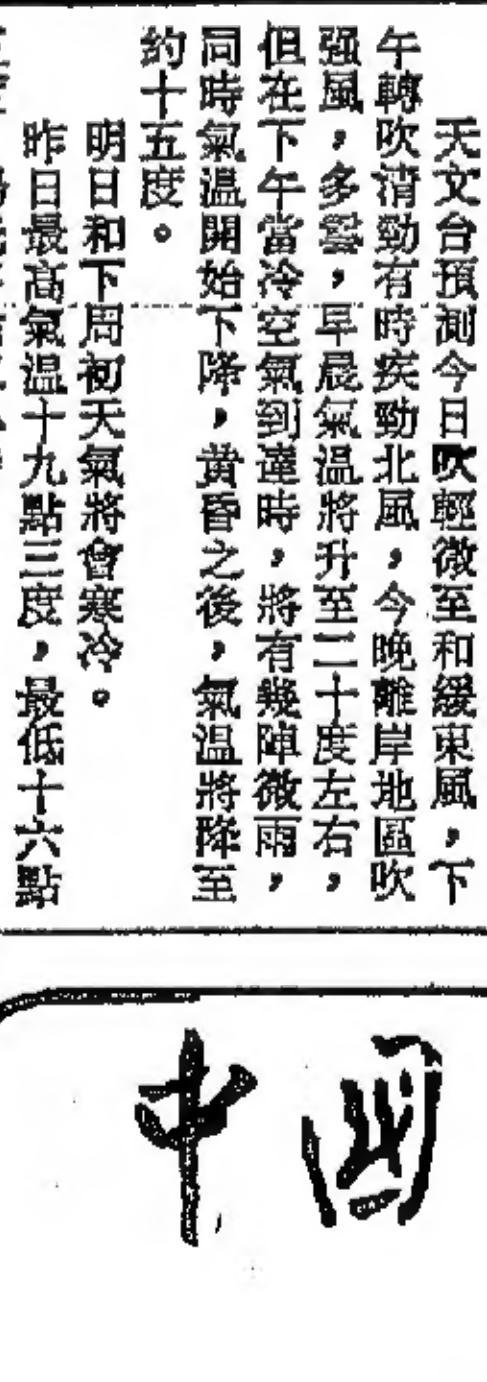 天文台預測今日吹輕微至和緩東風，下
午轉吹清勁有時疾勁北風，今晚離岸地區吹
强風，多雲，早晨氣溫將升至二十度左右，
但在下午當冷空氣到達時，將有幾陣微雨，
同時氣溫開始下降，黄昏之後，氣溫將降至
約十五度。
明日和下周初天氣將會寒冷。
昨日最高氣溫十九點三度，最低十六點
中國